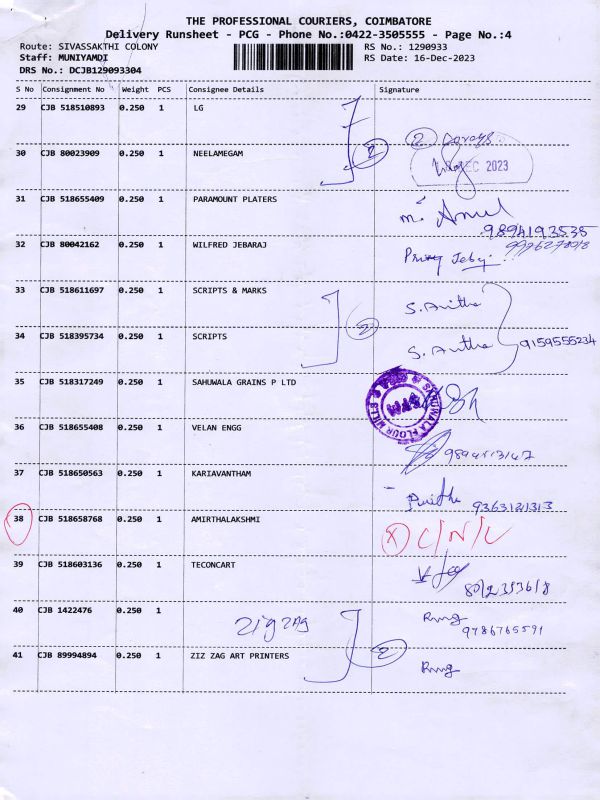 THE PROFESSIONAL COURIERS, COIMBATORE
Delivery Runsheet - PCG - Phone No.:0422-3505555 - Page No.:4
Route: SIVASSAKTHI COLONY RS No.: 1290933
Staff: MUNIYAMDI RS Date: 16-Dec-2023
DRS No.: DCJB129093304
S No Consignment No Weight PCS Consignee Details Signature
29 CJB 518510893 0.250 1 LG
2
30 CJB 80023909 0.250 1 NEELAMEGAM 2 DEC 2023
31 CJB 518655409 0.250 1 PARAMOUNT PLATERS
9894193535
32 CJB 80042162 0.250 1 WILFRED JEBARAJ
33 CJB 518611697 0.250 1 SCRIPTS & MARKS S. Anitha
2
34 CJB 518395734 0.250 1 SCRIPTS S. Anitha 9159556234
35 CJB 518317249 0.250 1 SAHUWALA GRAINS P LTD
SAHUWALA FLOUR MILLS
36 CJB 518655408 0.250 1 VELAN ENGG
37 CJB 518650563 0.250 1 KARIAVANTHAM
9363121313
38 CJB 518658768 0.250 1 AMIRTHALAKSHMI X C/N/L
39 CJB 518603136 0.250 1 TECONCART
40 CJB 1422476 0.250 1 Zig ZAg
9786765591
41 CJB 89994894 0.250 1 ZIZ ZAG ART PRINTERS 2